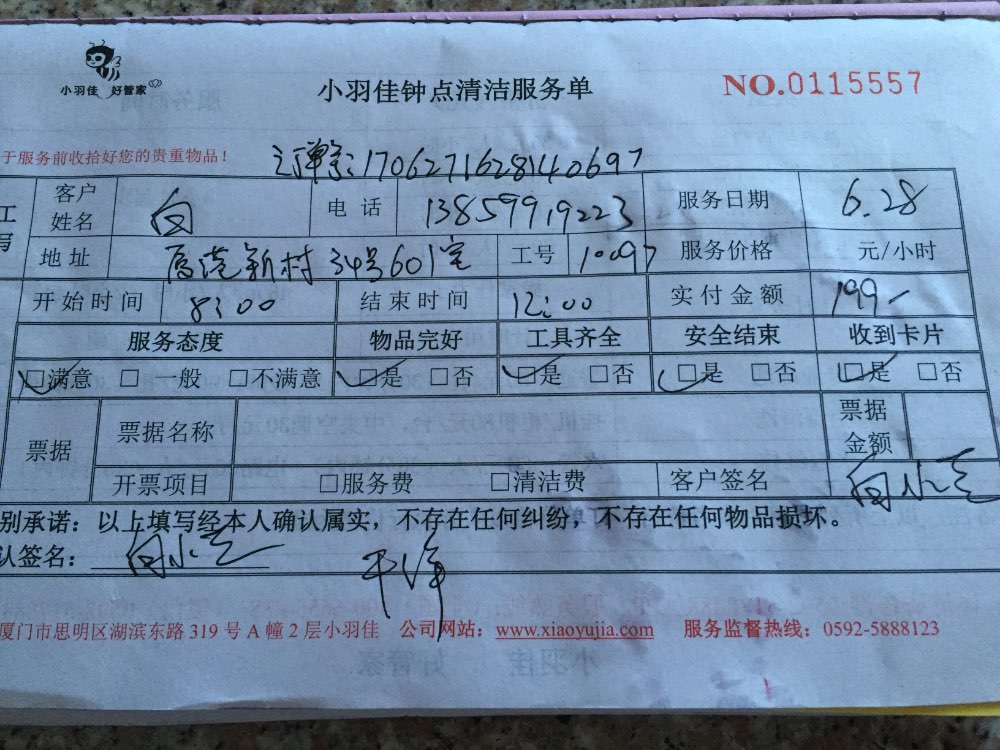 小羽佳 好管家
小羽佳钟点清洁服务单
NO.0115557
于服务前收拾好您的贵重物品！
订单号:1706271628140697
工
写
客户姓名 白 电话 13859919223 服务日期 6.28
地址 新村34号601室 工号 10097 服务价格 元/小时
开始时间 8:00 结束时间 12:00 实付金额 199-
服务态度 物品完好 工具齐全 安全结束 收到卡片
☑满意 □一般 □不满意 ☑是 □否 ☑是 □否 ☑是 □否 ☑是 □否
票据 票据名称 票据金额
开票项目 □服务费 □清洁费 客户签名
别承诺：以上填写经本人确认属实，不存在任何纠纷，不存在任何物品损坏。
认签名：
干净
厦门市思明区湖滨东路 319 号 A 幢 2 层小羽佳 公司网站：www.xiaoyujia.com 服务监督热线：0592-5888123